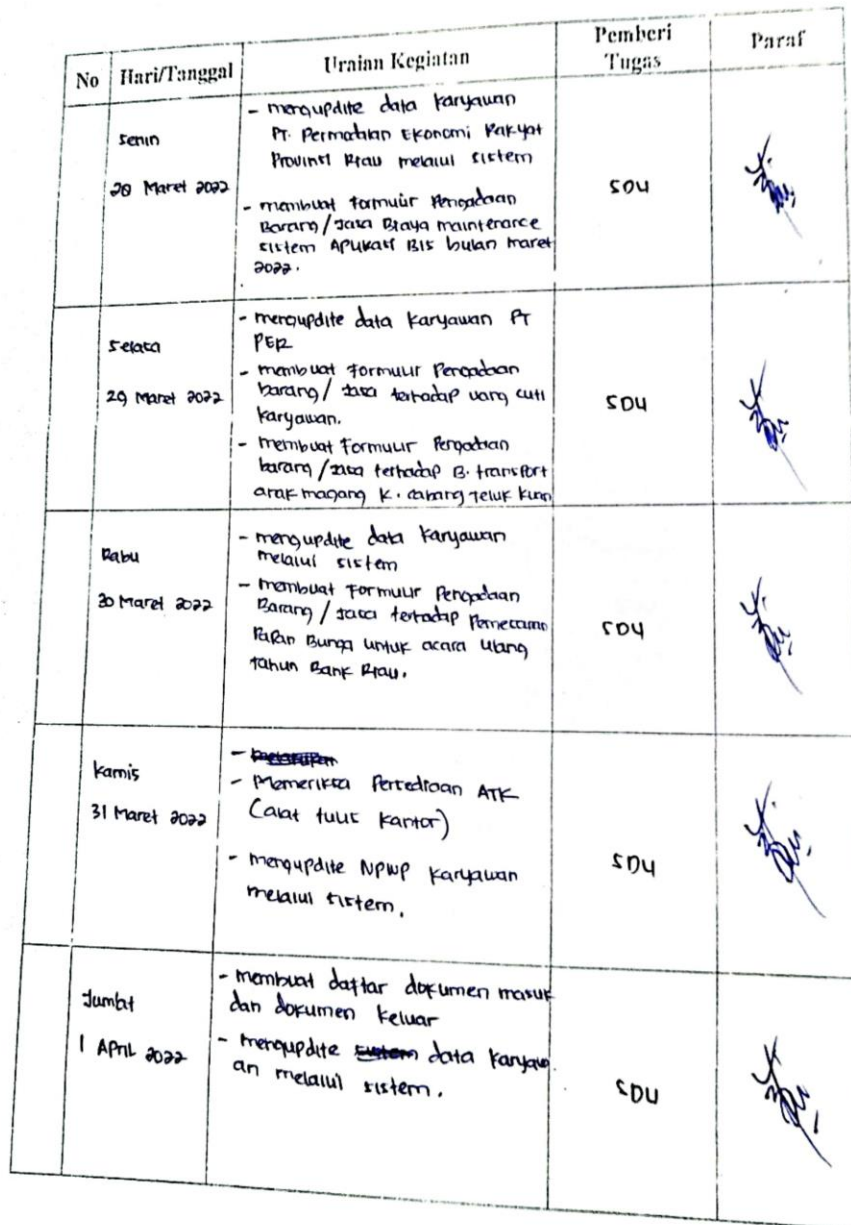 No Hari/Tanggal Uraian Kegiatan Pemberi Tugas Paraf
Senin
28 Maret 2022
- mengupdite data karyawan
PT. Permodalan Ekonomi Rakyat
Provinsi Riau melalui sistem
- membuat Formulir Pengadaan
Barang/Jasa Biaya maintenance
sistem Aplikasi BIS bulan maret
2022.
SDU
Selasa
29 Maret 2022
- mengupdite data karyawan PT
PER
- membuat Formulir Pengadaan
barang/Jasa terhadap uang cuti
karyawan.
- membuat Formulir Pengadaan
barang/Jasa terhadap B. transport
anak magang K. cabang Teluk
SDU
Rabu
30 Maret 2022
- mengupdite data karyawan
melalui sistem
- membuat Formulir Pengadaan
Barang/Jasa terhadap Pemesanan
Papan Bunga untuk acara ulang
tahun Bank Riau.
SDU
Kamis
31 Maret 2022
- Memeriksa Persediaan ATK
(alat tulis kantor)
- mengupdite NPWP karyawan
melalui sistem.
SDU
Jumat
1 April 2022
- membuat daftar dokumen masuk
dan dokumen keluar
- mengupdite sistem data karyaw
an melalui sistem.
SDU